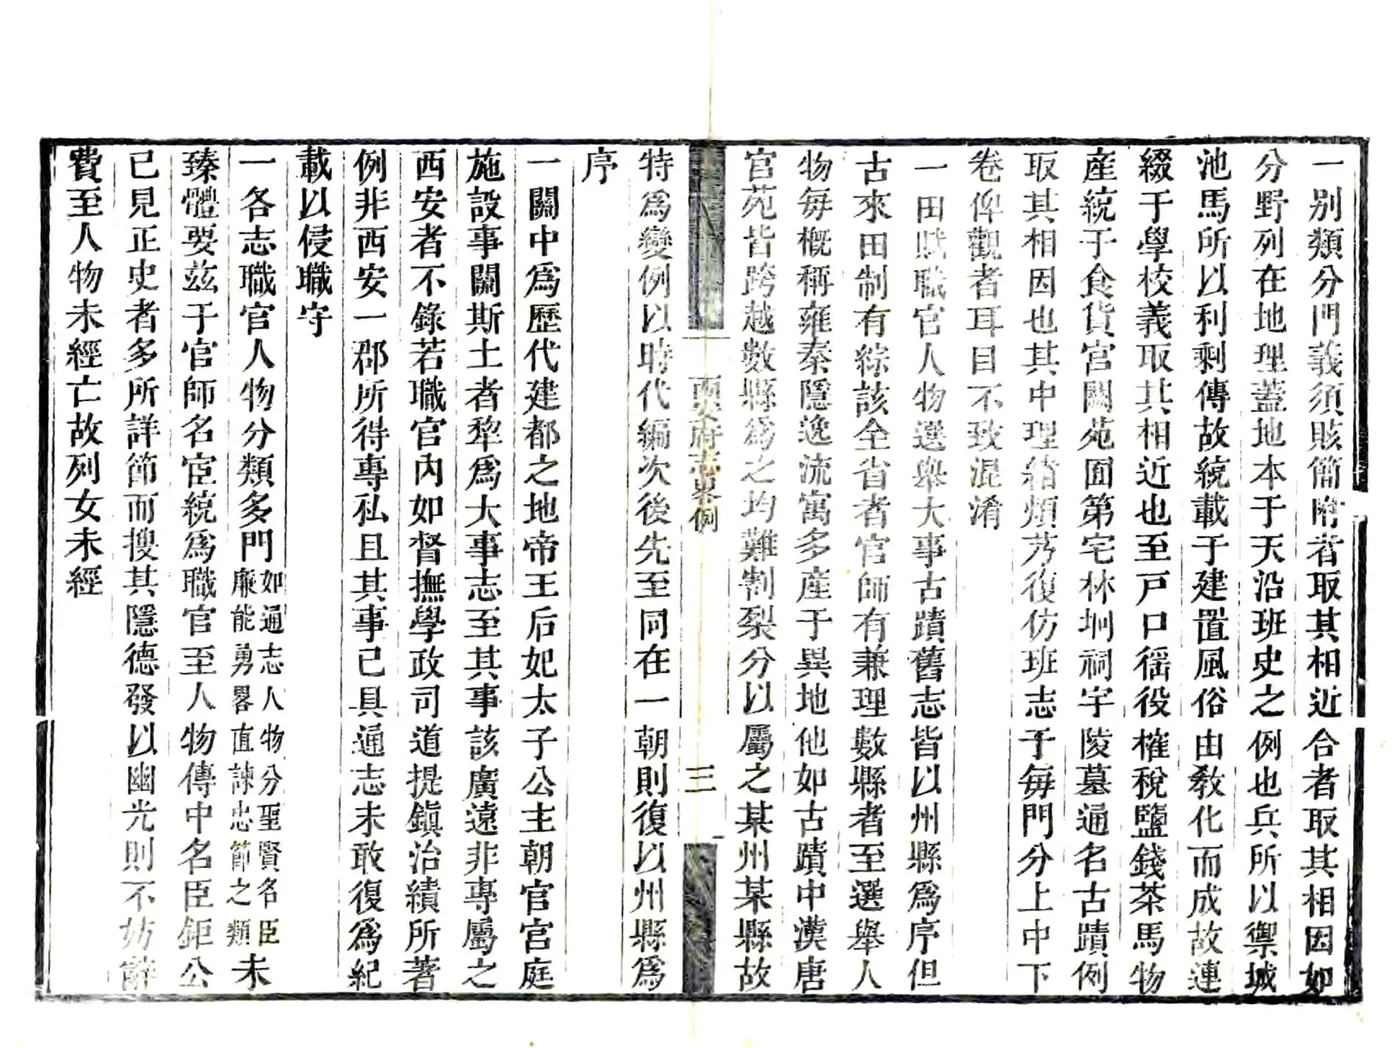 一別類分門義須賅簡附者取其相近合者取其相因如
分野列在地理蓋地本于天沿班史之例也兵所以禦城
池馬所以利剩傳故統載于建置風俗由敎化而成故連
綴于學校義取其相近也至戸口徭役榷稅鹽錢茶馬物
產統于食貨宮闕苑囿第宅林坰祠宇陵墓通名古蹟例
取其相因也其中理緒煩夥復仿班志于每門分上中下
卷俾觀者耳目不致混淆
一田賦職官人物選舉大事古蹟舊志皆以州縣爲序但
古來田制有綜該全省者官師有兼理數縣者至選舉人
物每槪稱雍秦隱逸流寓多產于異地他如古蹟中漢唐
官苑皆跨越數縣爲之均難割裂分以屬之某州某縣故
西安府志畧例
三
特爲變例以時代編次後先至同在一朝則復以州縣爲
序
一關中爲歷代建都之地帝王后妃太子公主朝官宮庭
施設事關斯土者犂爲大事志至其事該廣遠非專屬之
西安者不錄若職官內如督撫學政司道提鎭治績所著
例非西安一郡所得專私且其事已具通志未敢復爲紀
載以侵職守
一各志職官人物分類多門如通志人物分聖賢名臣廉能勇畧直諫忠節之類未
臻體要茲于官師名宦統爲職官至人物傳中名臣鉅公
已見正史者多所詳節而搜其隱德發以幽光則不妨辭
費至人物未經亡故列女未經